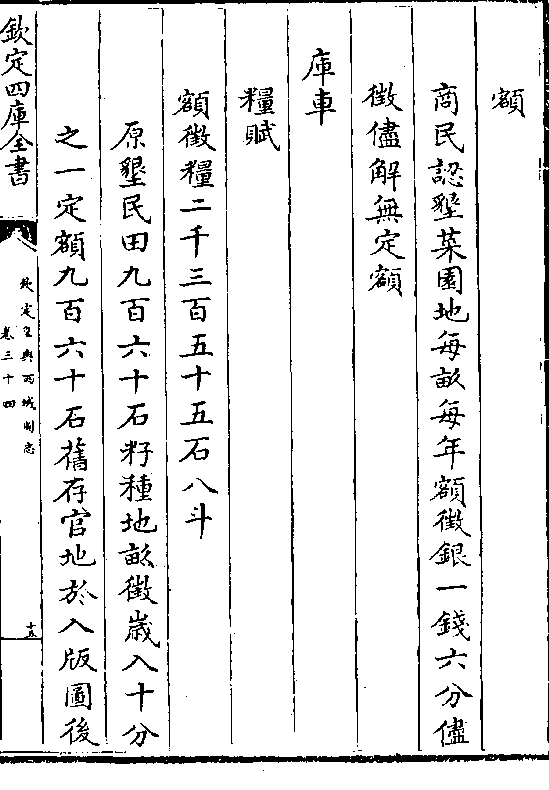 額
商民認墾菜園地每畝每年額徵銀一錢六分儘
徵儘解無定額
庫車
糧賦
額徵糧二千三百五十五石八斗
原墾民田九百六十石籽種地畝徵歲入十分
之一定額九百六十石舊存官地於入版圖後
欽定四庫全書
欽定皇輿西域圖志
卷三十四
十五